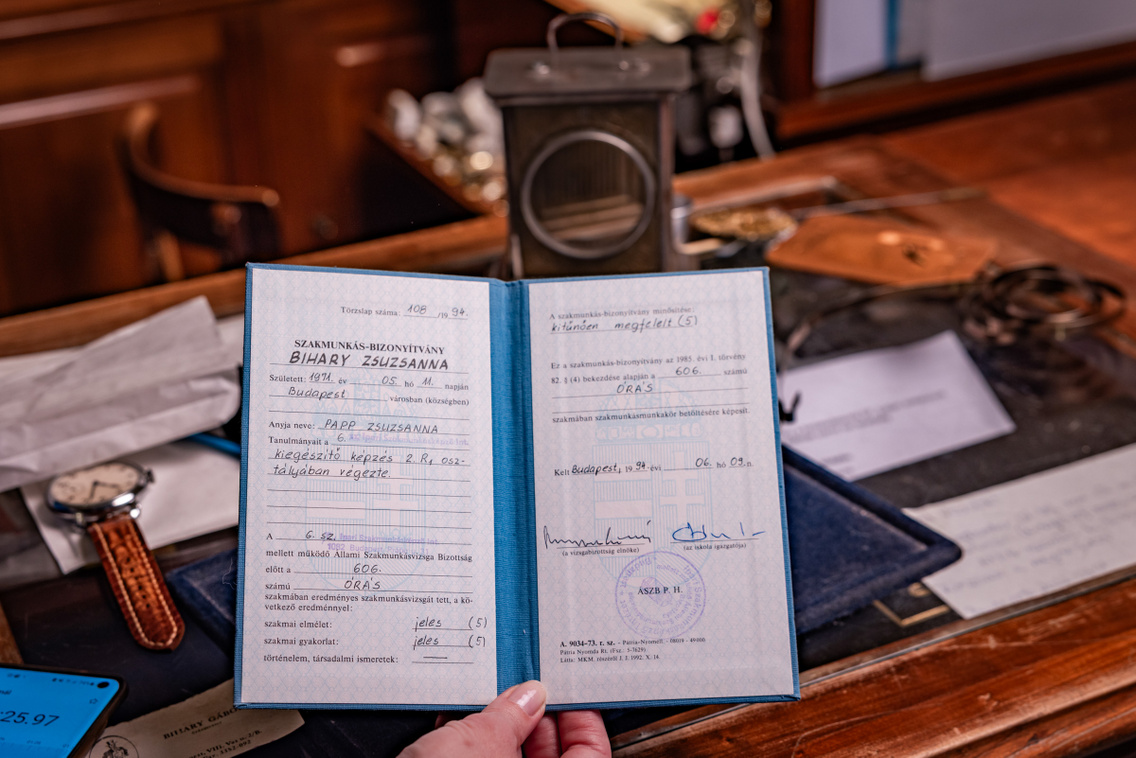 Törzslap száma: 108 /1994.
SZAKMUNKÁS-BIZONYÍTVÁNY
BIHARY ZSUZSANNA
Született: 1971. év 05. hó 11. napján
Budapest városban (községben)
Anyja neve: PAPP ZSUZSANNA
Tanulmányait a 6.
kiegészítő képzés 2. R, osz-
tályában végezte.
A 6. sz.
mellett működő Állami Szakmunkásvizsga Bizottság
előtt a 606.
számú ÓRÁS
szakmában eredményes szakmunkásvizsgát tett, a kö-
vetkező eredménnyel:
szakmai elmélet: jeles (5)
szakmai gyakorlat: jeles (5)
történelem, társadalmi ismeretek: —
A szakmunkás-bizonyítvány minősítése:
kitűnően megfelelt (5)
Ez a szakmunkás-bizonyítvány az 1985. évi I. törvény
82. § (4) bekezdése alapján a 606. számú
ÓRÁS
szakmában szakmunkásmunkakör betöltésére képesít.
Kelt Budapest, 1994. évi 06. hó 09. n.
(a vizsgabizottság elnöke) (az iskola igazgatója)
ÁSZB P. H.
A. 9034–73. r. sz. – Pátria-Nyomell.
Pátria Nyomda Rt.
Látta: MKM.
25.97
BIHARY GÁBOR